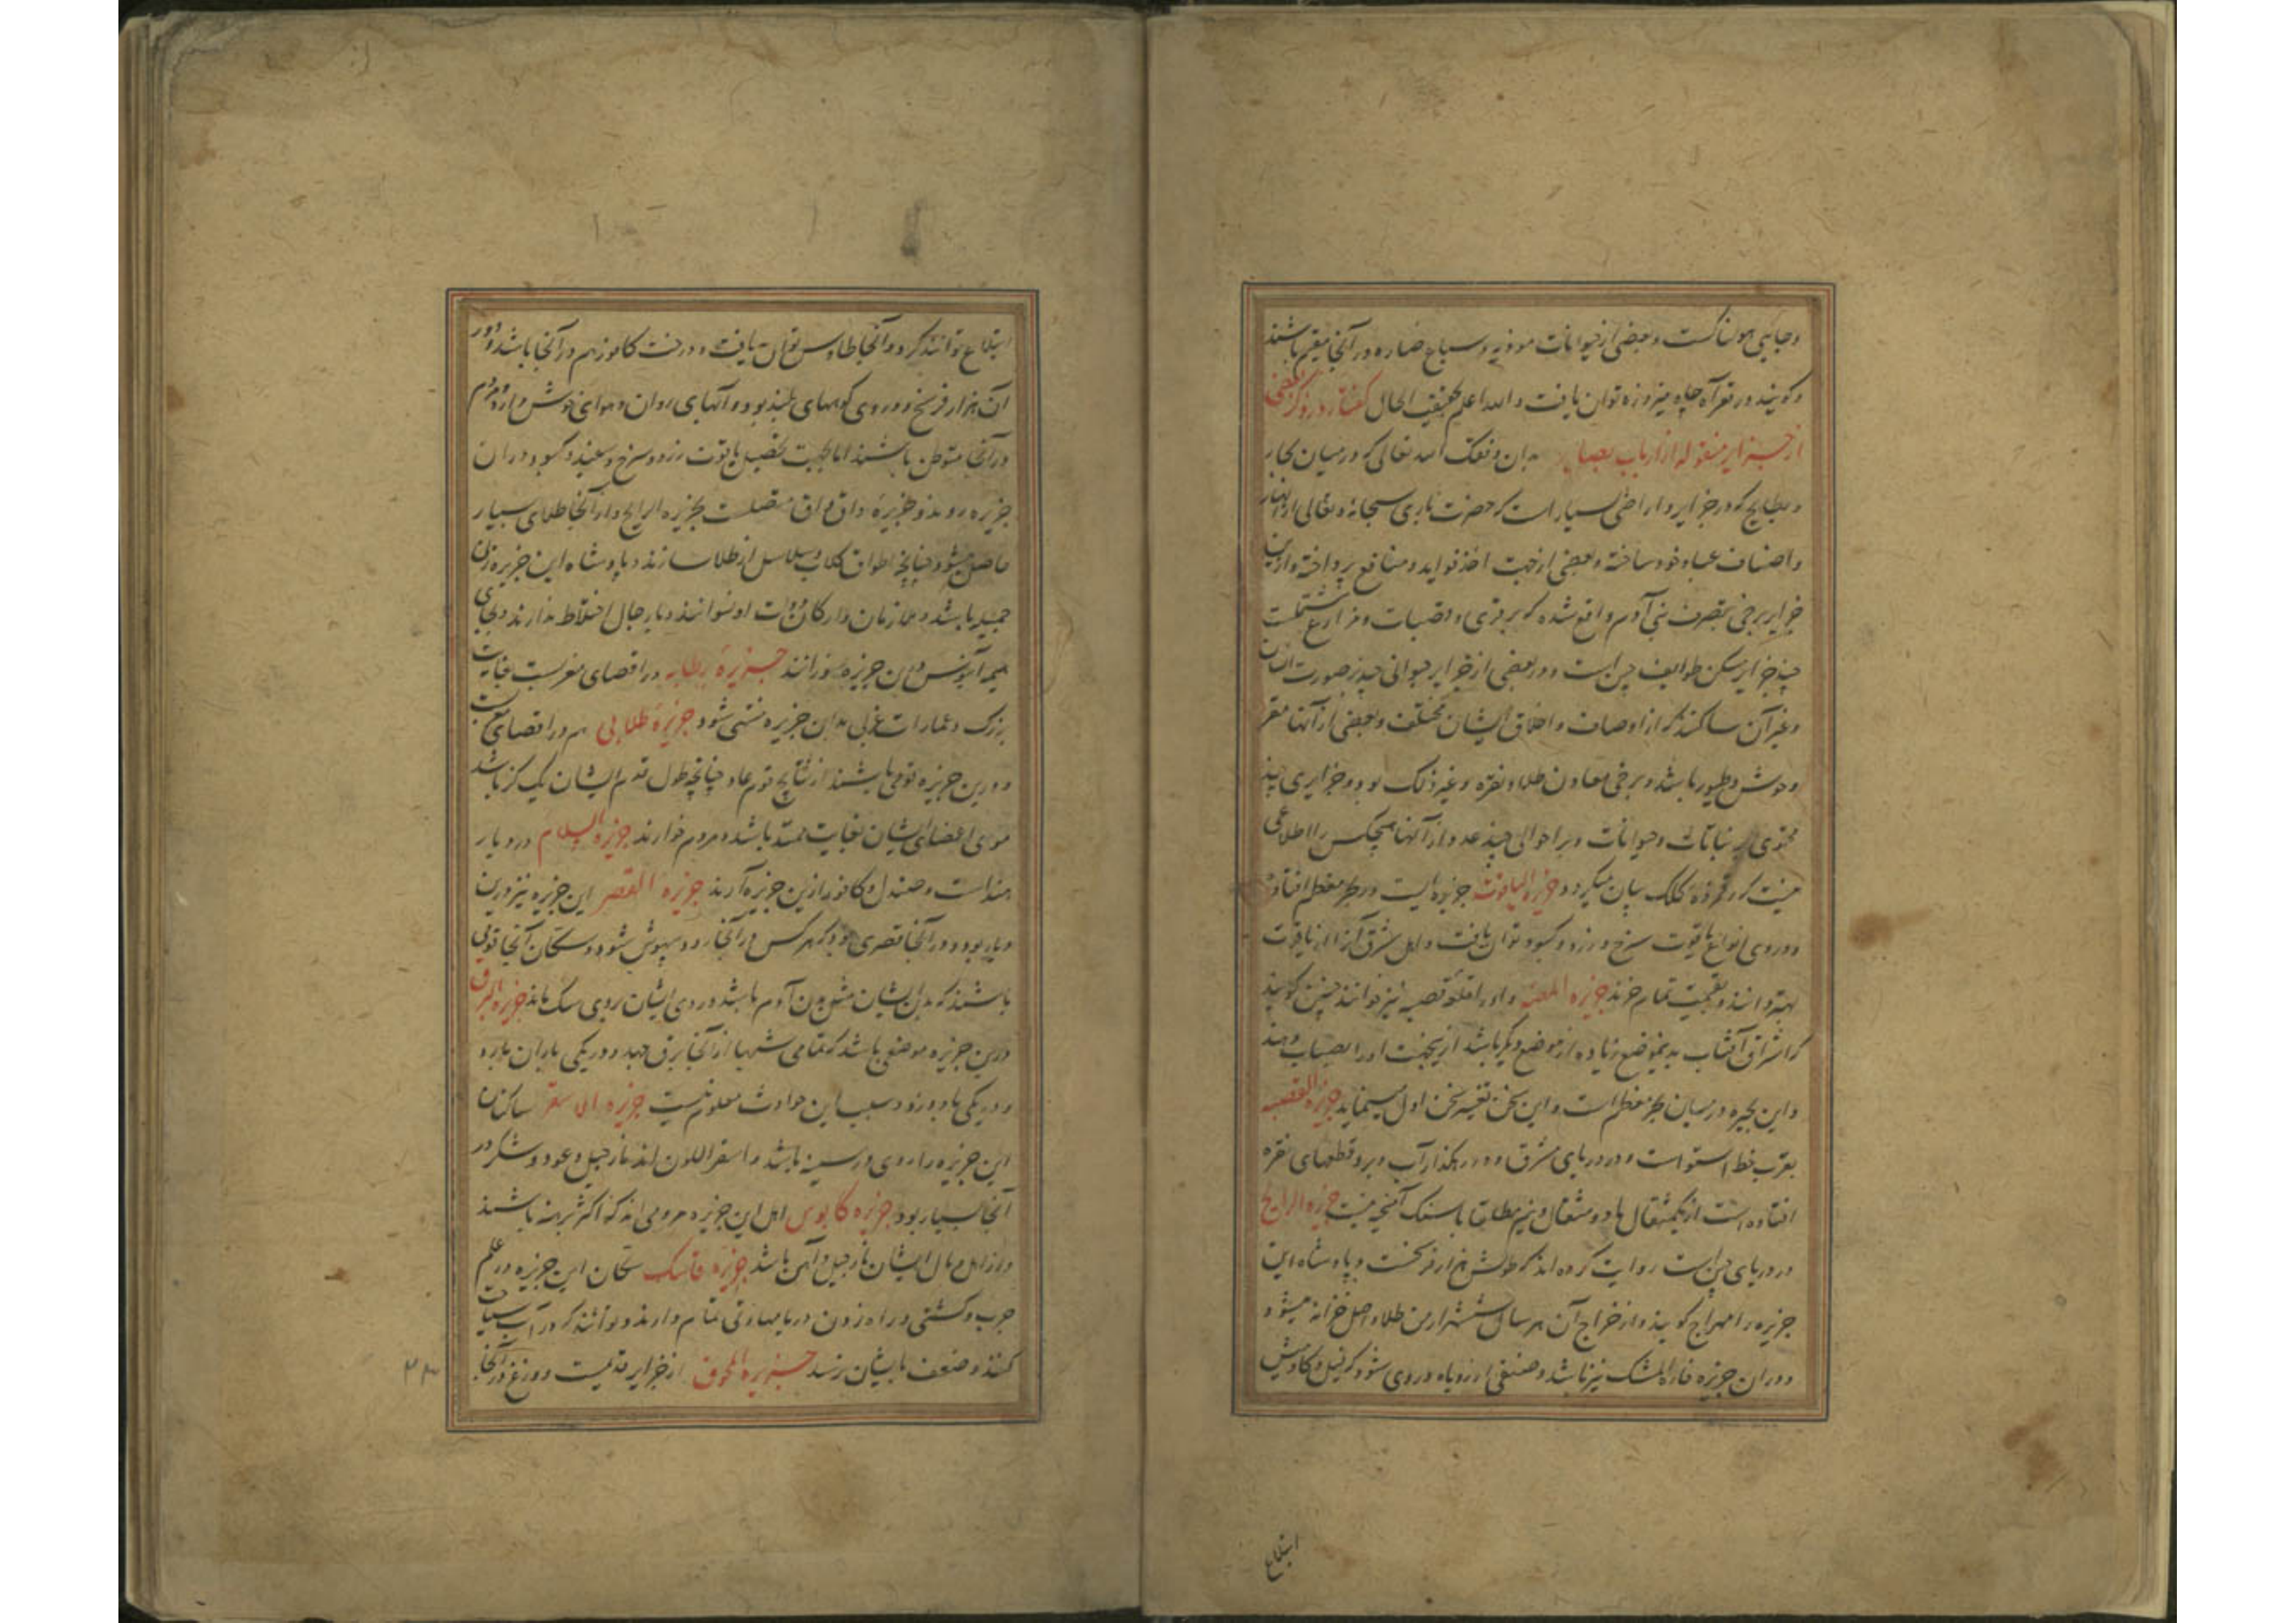 و جایی هولناکست و بعضی از حیوانات موذیه و سباع ضاره در آنجا مقیم باشند
و کویند در قعر آن چاه فیروزه توان یافت و الله اعلم بحقیقت الحال کفتار در ذکر بعضی
از جزایر منقوله از ارباب بصایر بدان وفقک الله تعالی که در میان بحار
و بطایح که در جزایر و اراضی بسیار است که حضرت باری سبحانه و تعالی از
و اصناف عباد خود ساخته و بعضی از جهت اخذ فواید و منافع پرداخته و ازین
جزایر برخی بتصرف بنی آدم واقع شده که بر قری و قصبات و مزارع مشتملست
چند جزایر مسکن طوایف جن است و در بعضی از جزایر حیوانی چند بصورت انسان
و غیر آن ساکنند که از اوصاف و اخلاق ایشان مختلف و بعضی از آنها مقر
وحوش و طیور باشد و برخی معادن طلا و نقره و غیر ذلک بود و جزایری چند
محتوی بر نباتات و حیوانات و بر احوالی چند عدد از آنها هیچکس را اطلاعی
نیست کلک بیان میکردد جزیره الیاقوت جزیره ایست در بحر معظم افتاده
و در وی انواع یاقوت سرخ و زرد و کبود توان یافت و اهل شرق آنرا از یاقوت
بهتر دانند و بقیمت تمام خرند جزیره و او را قلعه قصبه نیز خوانند چنین کویند
که اشراق آفتاب بدینموضع زیاده از موضع دیکر باشد ازینجهت او را بصیاب دهند
و این بحیره در میان بحر معظم است و این سخن تغییر سخن اول مینماید جزیره
بقرب خط استوا است و در دریای مشرق و در رهکذار آب و برو قطعهای نقره
افتاده است از یکمثقال تا دو مثقال و نیم مطلقا با سنک آمیخته نیست جزیره الرایح
در دریای چین است روایت کرده اند که طولش هزار فرسخست و پادشاه این
جزیره را مهراج کویند و از خراج آن هر سال ششهزار من طلا داخل خزانه میشود
و در ان جزیره فاره المشک نیز باشد و صنفی از روباه در وی شود که فیل و کاومیش
ابتلاع
ابتلاع توانند کرد و در آنجا طاوس توان یافت و درخت کافور هم در آنجا باشد و دور
آن هزار فرسخ و در وی کوههای بلند بود و آبهای روان و هوای خوش دارد و مردم
در آنجا متوطن باشند اما بجهت تحصیل یاقوت زرد و سرخ و سفید و کبود در ان
جزیره روند و جزیره واق واق متصلست بجزیره الرایح و از آنجا طلای بسیار
حاصل میشود چنانچه اطواق کلاب و سلاسل از طلا سازند و پادشاه این جزیره زن
جمیله باشد و ملازمان و ارکان دولت او نسوانند و با رجال اختلاط ندارند و بجای
هیمه آبنوس در ان جزیره سوزانند جزیره رطابه در اقصای مغربست بغایت
بزرک و عمارات غربی بدان جزیره منتهی شود جزیره طلابی هم در اقصای مغربست
و درین جزیره قومی باشند از نتایج قوم عاد چنانچه طول قدم ایشان یک کز باشد
موی اعضای ایشان بغایت ممتد باشد و مردم خوارند جزیره السلام در دیار
هند است و صندل و کافور ازین جزیره آرند جزیره القصر این جزیره نیز درین
دیار بود و در آنجا قصری بود که هر کس در آنجا رود بیهوش شود و سکان آنجا قومی
باشند که بدن ایشان مثل بدن آدم باشد و روی ایشان بروی سک ماند جزیره البرق
درین جزیره موضعی باشد که تمامی شبها از آنجا برق جهد و در یکی باران بارد
و در یکی باد وزد و سبب این حوادث معلوم نیست جزیره سقر ساکنان
این جزیره را روی در سینه باشد و اسقر اللون اند نارجیل و عود و شکر در
آنجا بسیار بود جزیره کابوس اهل این جزیره مردمی اند که اکثر برهنه باشند
و از اهل مال ایشان نارجیل و آهن باشد جزیره فاسک سکان این جزیره در علم
حرب و کشتی و راه زدن دریا مهارتی تمام دارند و توانند که در آب سیاحت
کنند و ضعف بایشان نرسد جزیره الجوف از جزایر قدیمست و وزغ در آنجا